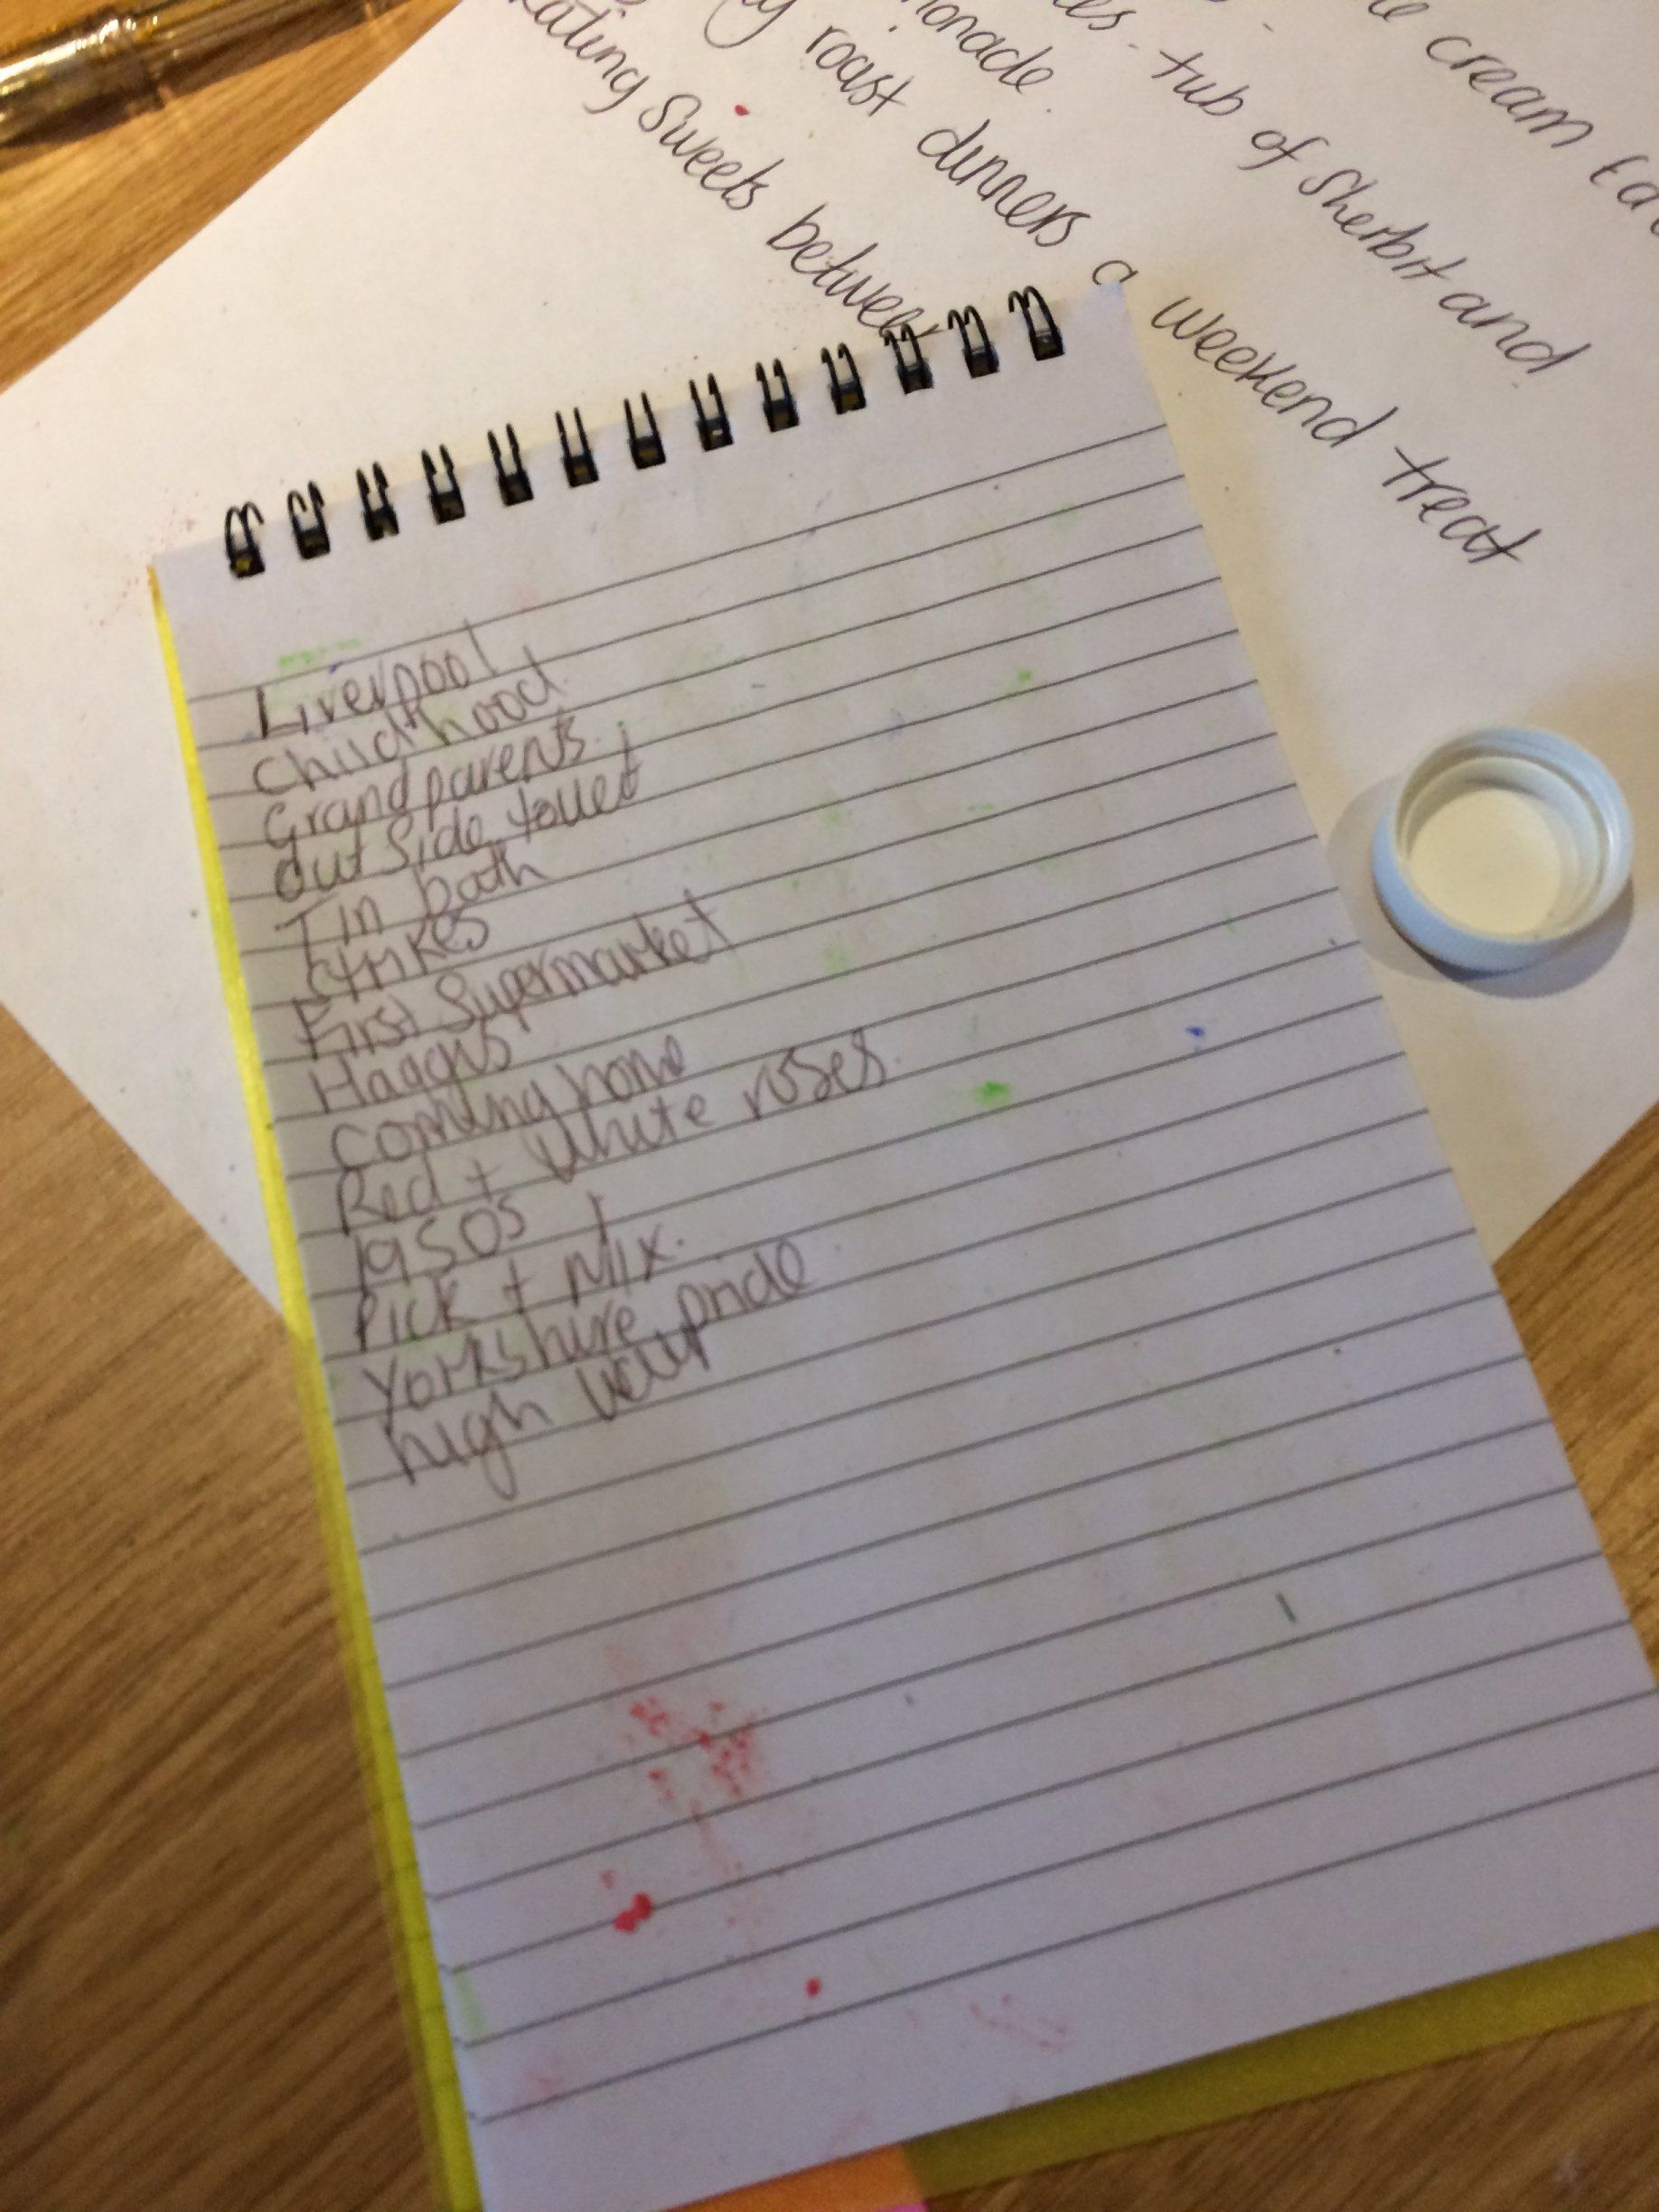 cream
tub of Sherbit and
roast dinners a weekend treat
eating Sweets between
Liverpool
Childhood.
Grandparents.
Outside toilet
Tin bath
Strikes
First Supermarket
Coming home
Red + white roses.
1950s
Pick + Mix.
Yorkshire pride
high